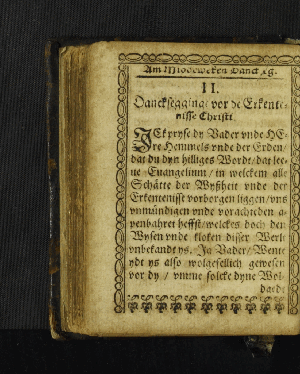 Am Middeweken Dancksg.
II.
Danckseggingе vor de Erkente-
nisse Christi
ICk pryse dy Vader vnde HE-
re Hemmels vnde der Erden/
dat du dyn hilliges Wordt/ dat leе-
ue Euangelium/ in welckem alle
Schätte der Wyßheit vnde der
Erkentenisse vorborgen liggen/ vns
vnmündigen vnde vorachteden a-
penbahret heffst/ welckes doch den
Wysen vnde kloken disser Werlt
vnbekandt ys. Ja Vader/ Wente
ydt ys also wolgefellich gewesen
vor dy/ vmme solcke dyne Wol-
dadt